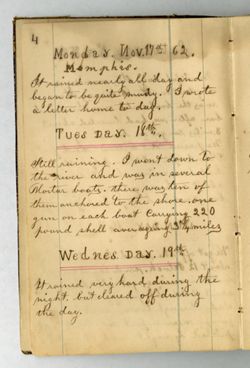 4
Monday. Nov. 17th 62.
Memphis.
It rained nearly all day and
began to be quite muddy. I wrote
a letter home to day.
Tues Day. 18th.
Still raining. I went down to
the river and was in several
Mortar boats. there was ten of
them anchored to the shore. one
gun on each boat carrying 220
pound shell averaging 3¾ miles
Wednes Day. 19th
It rained very hard during the
night. but cleared off during
the day.